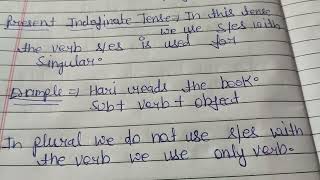 Present Indefinate Tense → In this tense
we use s/es with
the verb s/es is used for
Singular.
Example ⇒ Hari reads the book.
Subt verb + object
In plural we do not use s/es with
the verb we use only verb.